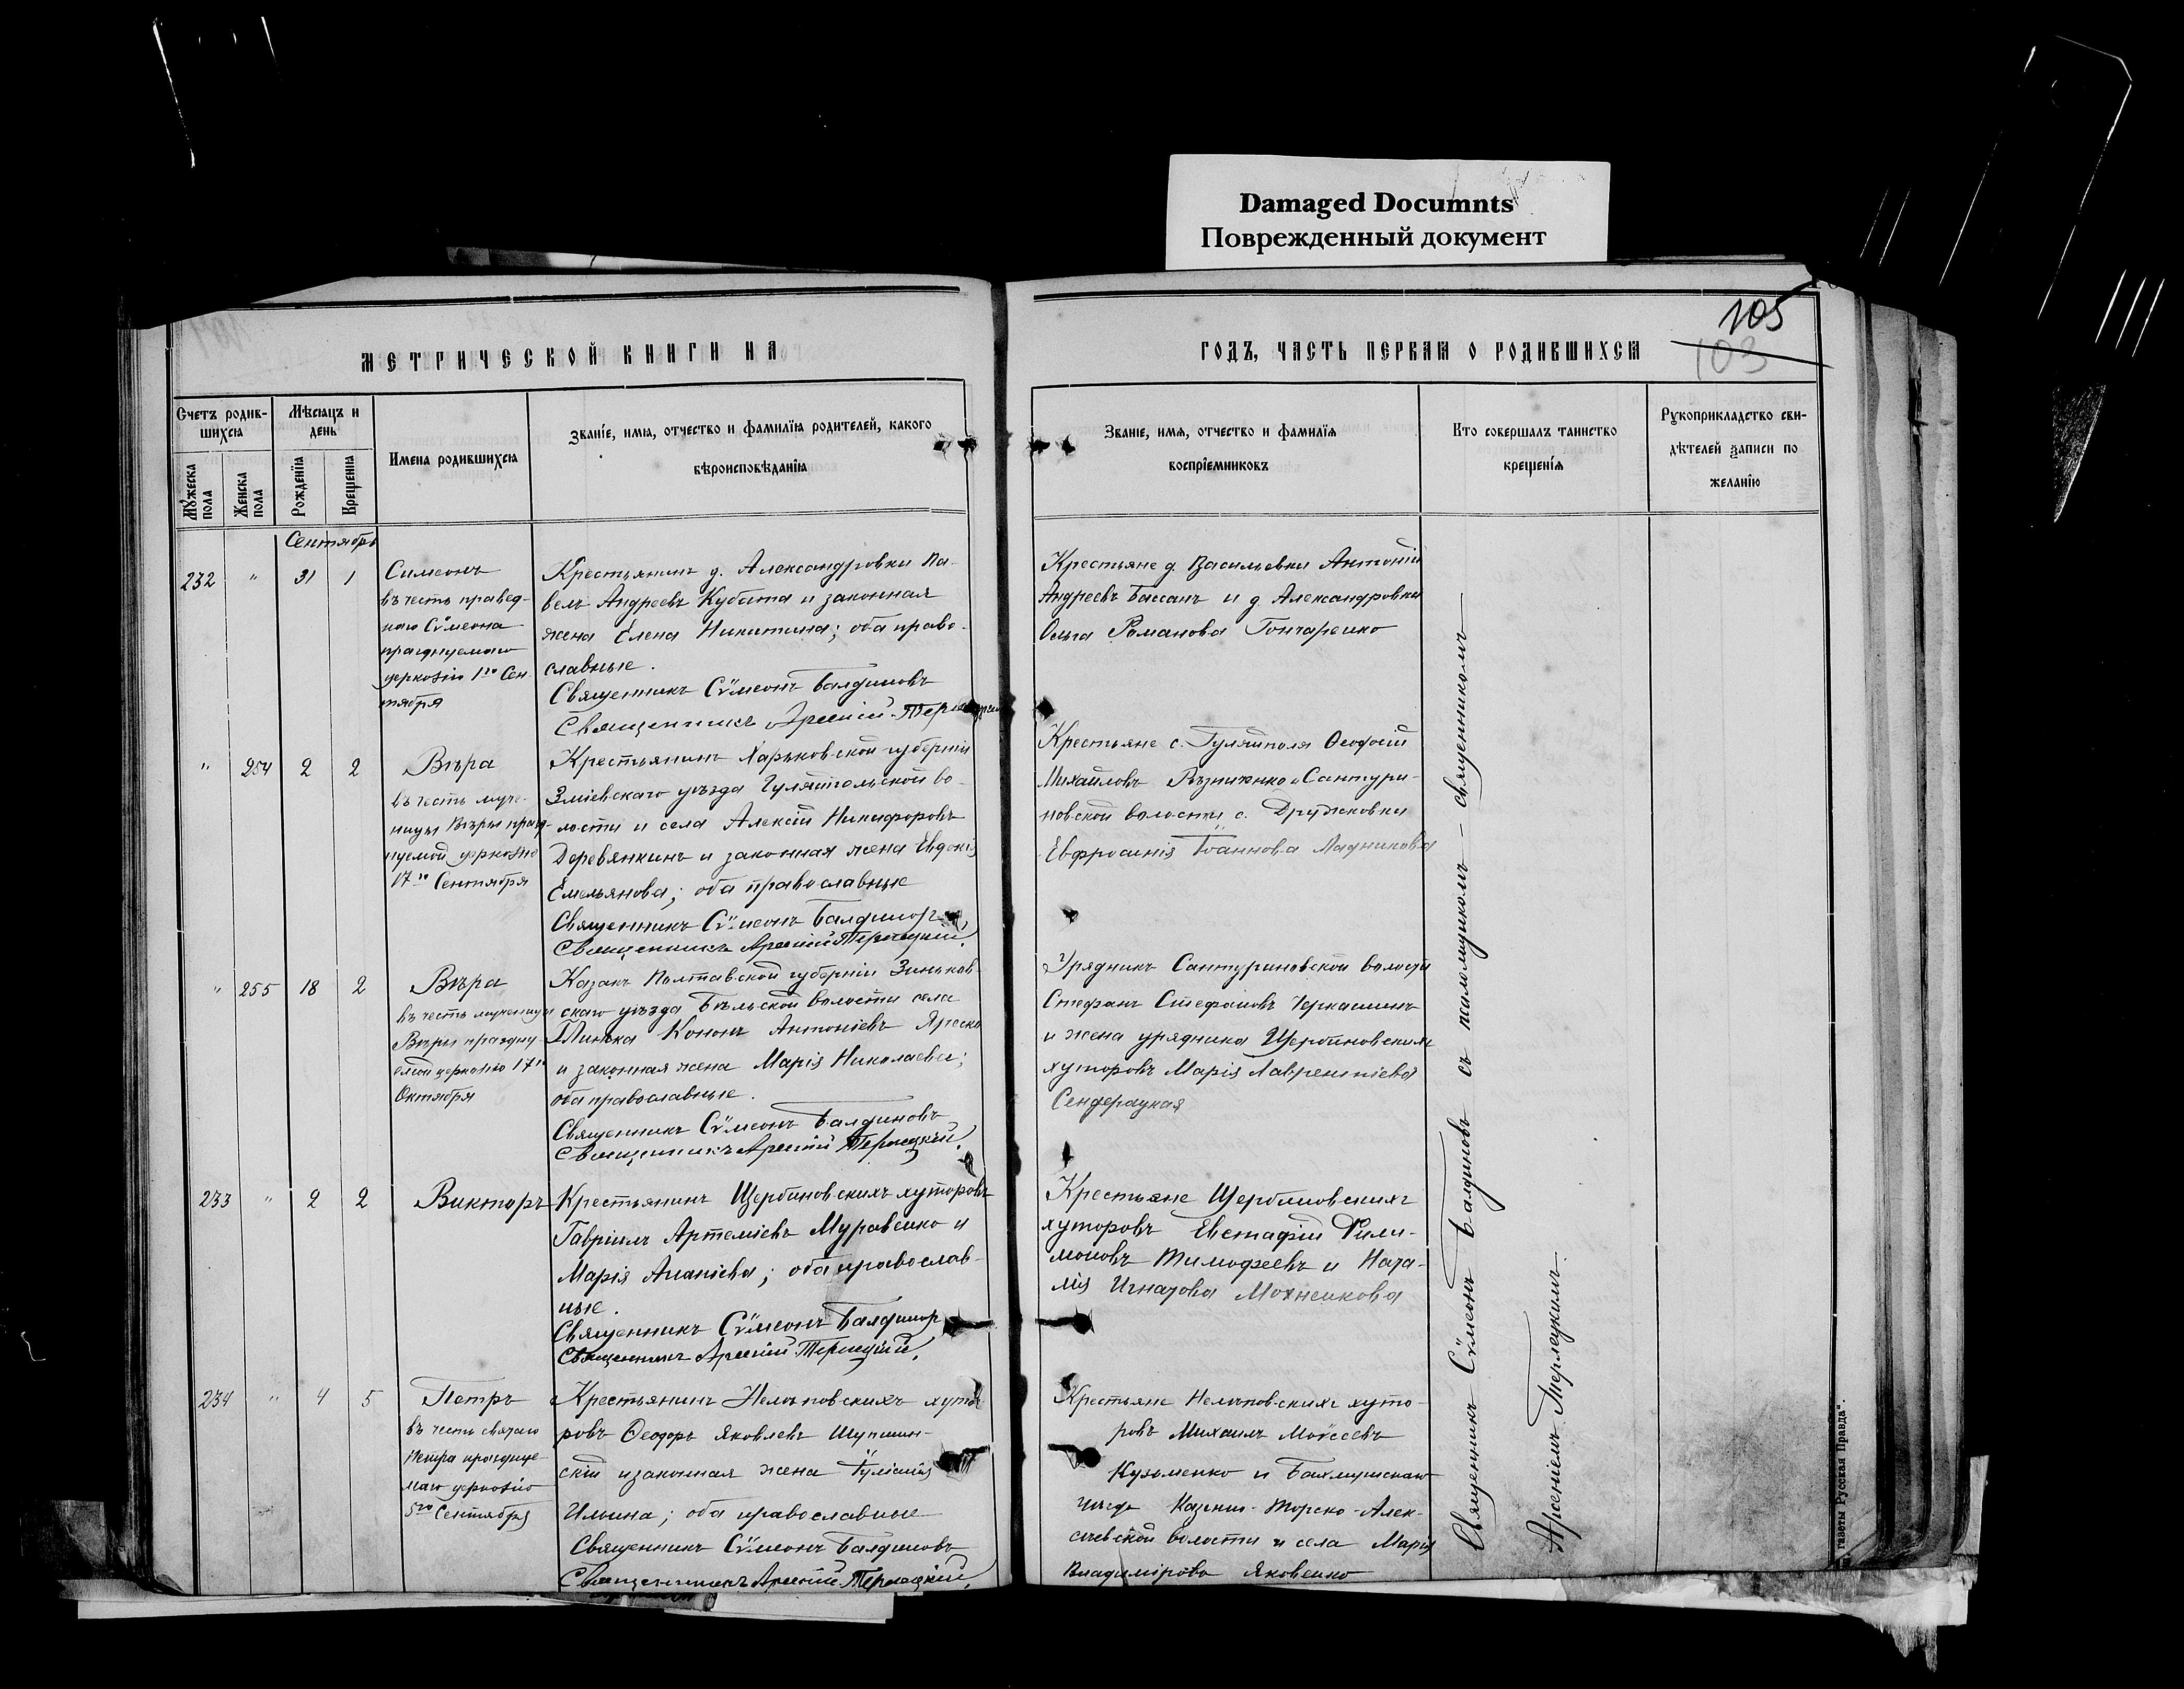 Damaged Documnts
Поврежденный документ
105
103
МЕТРИЧЕСКОЙ КНИГИ НА
ГОДЪ, ЧАСТЬ ПЕРВАЯ О РОДИВШИХСЯ
Счетъ родив-
шихся
Мѣсяцъ и
день
Имена родившихся
Званіе, имя, отчество и фамилія родителей, какого
вѣроисповѣданія
Мужеска
пола
Женска
пола
Рожденія
Крещенія
Званіе, имя, отчество и фамилія
воспріемниковъ
Кто совершалъ таинство
крещенія
Рукоприкладство сви-
дѣтелей записи по
желанію
Сентябрь
232 " 31 1
Симеонъ
въ честь правед-
наго Сѵмеона
празднуемаго
церковію 1го Сен-
тября
Крестьянинъ д. Александровки Па-
велъ Андреевъ Кубата и законная
жена Елена Никитина; оба право-
славные.
Священникъ Сѵмеонъ Балдиновъ
Священникъ Арсеній Терлецкій
Крестьяне д. Васильевки Антоній
Андреевъ Бассанъ и д. Александровки
Ольга Романова Гончаренко
" 254 2 2
Вѣра
въ честь муче-
ницы Вѣры празд-
нуемой церковію
17го Сентября
Крестьянинъ Харьковской губерніи
Зміевскаго уѣзда Гуляйпольской во-
лости и села Алексій Никифоровъ
Деревянкинъ и законная жена Евдокія
Емельянова; оба православные
Священникъ Сѵмеонъ Балдиновъ
Священникъ Арсеній Терлецкій.
Крестьяне с. Гуляйполя Ѳеодосій
Михайловъ Рѣзниченко и Сантури-
новской волости с. Дружковки
Евфросинія Іоаннова Ладникова
" 255 18 2
Вѣра
въ честь мученицы
Вѣры праздну-
емой церковію 17го
Октября
Казакъ Полтавской губерніи Зиньков-
скаго уѣзда Бѣльской волости села
Глинска Кононъ Антоніевъ Яреско
и законная жена Марія Николаева;
оба православные.
Священникъ Сѵмеонъ Балдиновъ
Священникъ Арсеній Терлецкій.
Урядникъ Сантуриновской волости
Стефанъ Стефановъ Черкашинъ
и жена урядника Щербиновскихъ
хуторовъ Марія Лаврентіева
Сендерацкая
233 " 2 2
Викторъ
Крестьянинъ Щербиновскихъ хуторовъ
Гавріилъ Артеміевъ Муравенко и
Марія Ананіева; оба православ-
ные.
Священникъ Сѵмеонъ Балдиновъ
Священникъ Арсеній Терлецкій.
Крестьяне Щербиновскихъ
хуторовъ Евстафій Фили-
моновъ Тимофеевъ и Ната-
лія Игнатова Мохненкова
234 " 4 5
Петръ
въ честь святаго
Петра празднуе-
маго церковію
5го Сентября
Крестьянинъ Нелѣповскихъ хуто-
ровъ Ѳеодоръ Яковлевъ Шупшин-
скій и законная жена Іуліанія
Ильина; оба православные
Священникъ Сѵмеонъ Балдиновъ
Священникъ Арсеній Терлецкій.
Крестьяне Нелѣповскихъ хуто-
ровъ Михаилъ Моѵсеевъ
Кузьменко и Бахмутскаго
уѣзда Казенно-Торско-Алек-
сѣевской волости и села Марія
Владимірова Яковенко
Священникъ Сѵмеонъ Балдиновъ съ псаломщикомъ – священникомъ
Арсеніемъ Терлецкимъ.
газеты „Русская Правда“.